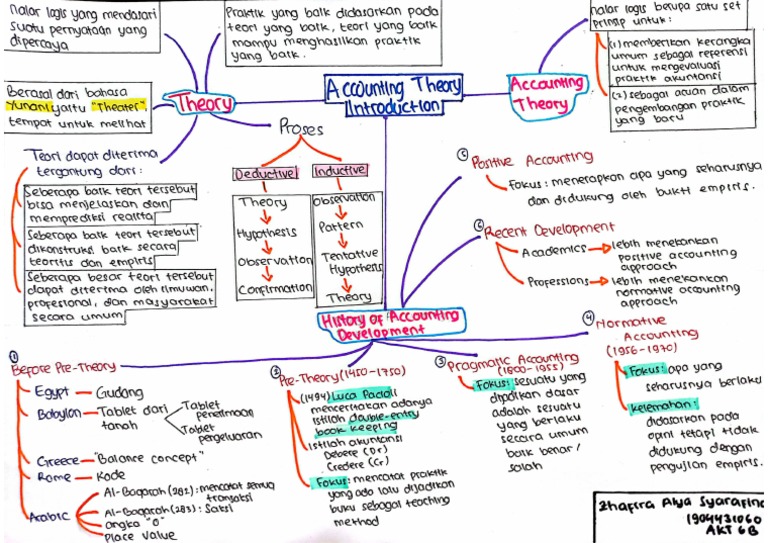 nalar logis yang mendasari
suatu pernyataan yang
dipercaya
Praktik yang baik didasarkan pada
teori yang baik, teori yang baik
mampu menghasilkan praktik
yang baik.
nalar logis berupa satu set
prinsip untuk:
(1) memberikan kerangka
umum sebagai referensi
untuk mengevaluasi
praktik akuntansi
(2) sebagai acuan dalam
pengembangan praktik
yang baru
Berasal dari bahasa
Yunani yaitu "Theater",
tempat untuk melihat
Theory
Accounting Theory
Introduction
Accounting
Theory
Proses
Teori dapat diterima
tergantung dari:
Seberapa baik teori tersebut
bisa menjelaskan dan
memprediksi realita
Seberapa baik teori tersebut
dikonstruksi baik secara
teoritis dan empiris
Seberapa besar teori tersebut
dapat diterima oleh ilmuwan,
profesional, dan masyarakat
secara umum
Deductive
Theory
Hypothesis
Observation
Confirmation
Inductive
Observation
Pattern
Tentative
Hypothesis
Theory
5 Positive Accounting
Fokus: menerapkan apa yang seharusnya
dan didukung oleh bukti empiris.
6 Recent Development
Academics → lebih menekankan
positive accounting
approach
Professions → lebih menekankan
normative accounting
approach
History of Accounting
Development
1
Before Pre-Theory
Egypt – Gudang
Babylon – Tablet dari
tanah
Tablet
penerimaan
Tablet
pengeluaran
Greece – "Balance concept"
Rome – Kode
Arabic
Al-Baqarah (282): mencatat semua
transaksi
Al-Baqarah (283): Saksi
angka "0"
Place value
2
Pre-Theory (1450-1750)
(1494) Luca Pacioli
menceritakan adanya
istilah double-entry
book keeping
Istilah akuntansi
Debere (Dr)
Credere (Cr)
Fokus: mencatat praktik
yang ada lalu dijadikan
buku sebagai teaching
method
3 Pragmatic Accounting
(1800-1955)
Fokus: sesuatu yang
dijadikan dasar
adalah sesuatu
yang berlaku
secara umum
baik benar/
salah
4 Normative
Accounting
(1956-1970)
Fokus: apa yang
seharusnya berlaku
Kelemahan:
didasarkan pada
opini tetapi tidak
didukung dengan
pengujian empiris.
Zhafira Alya Syarafina
1904431060
AKT 6B